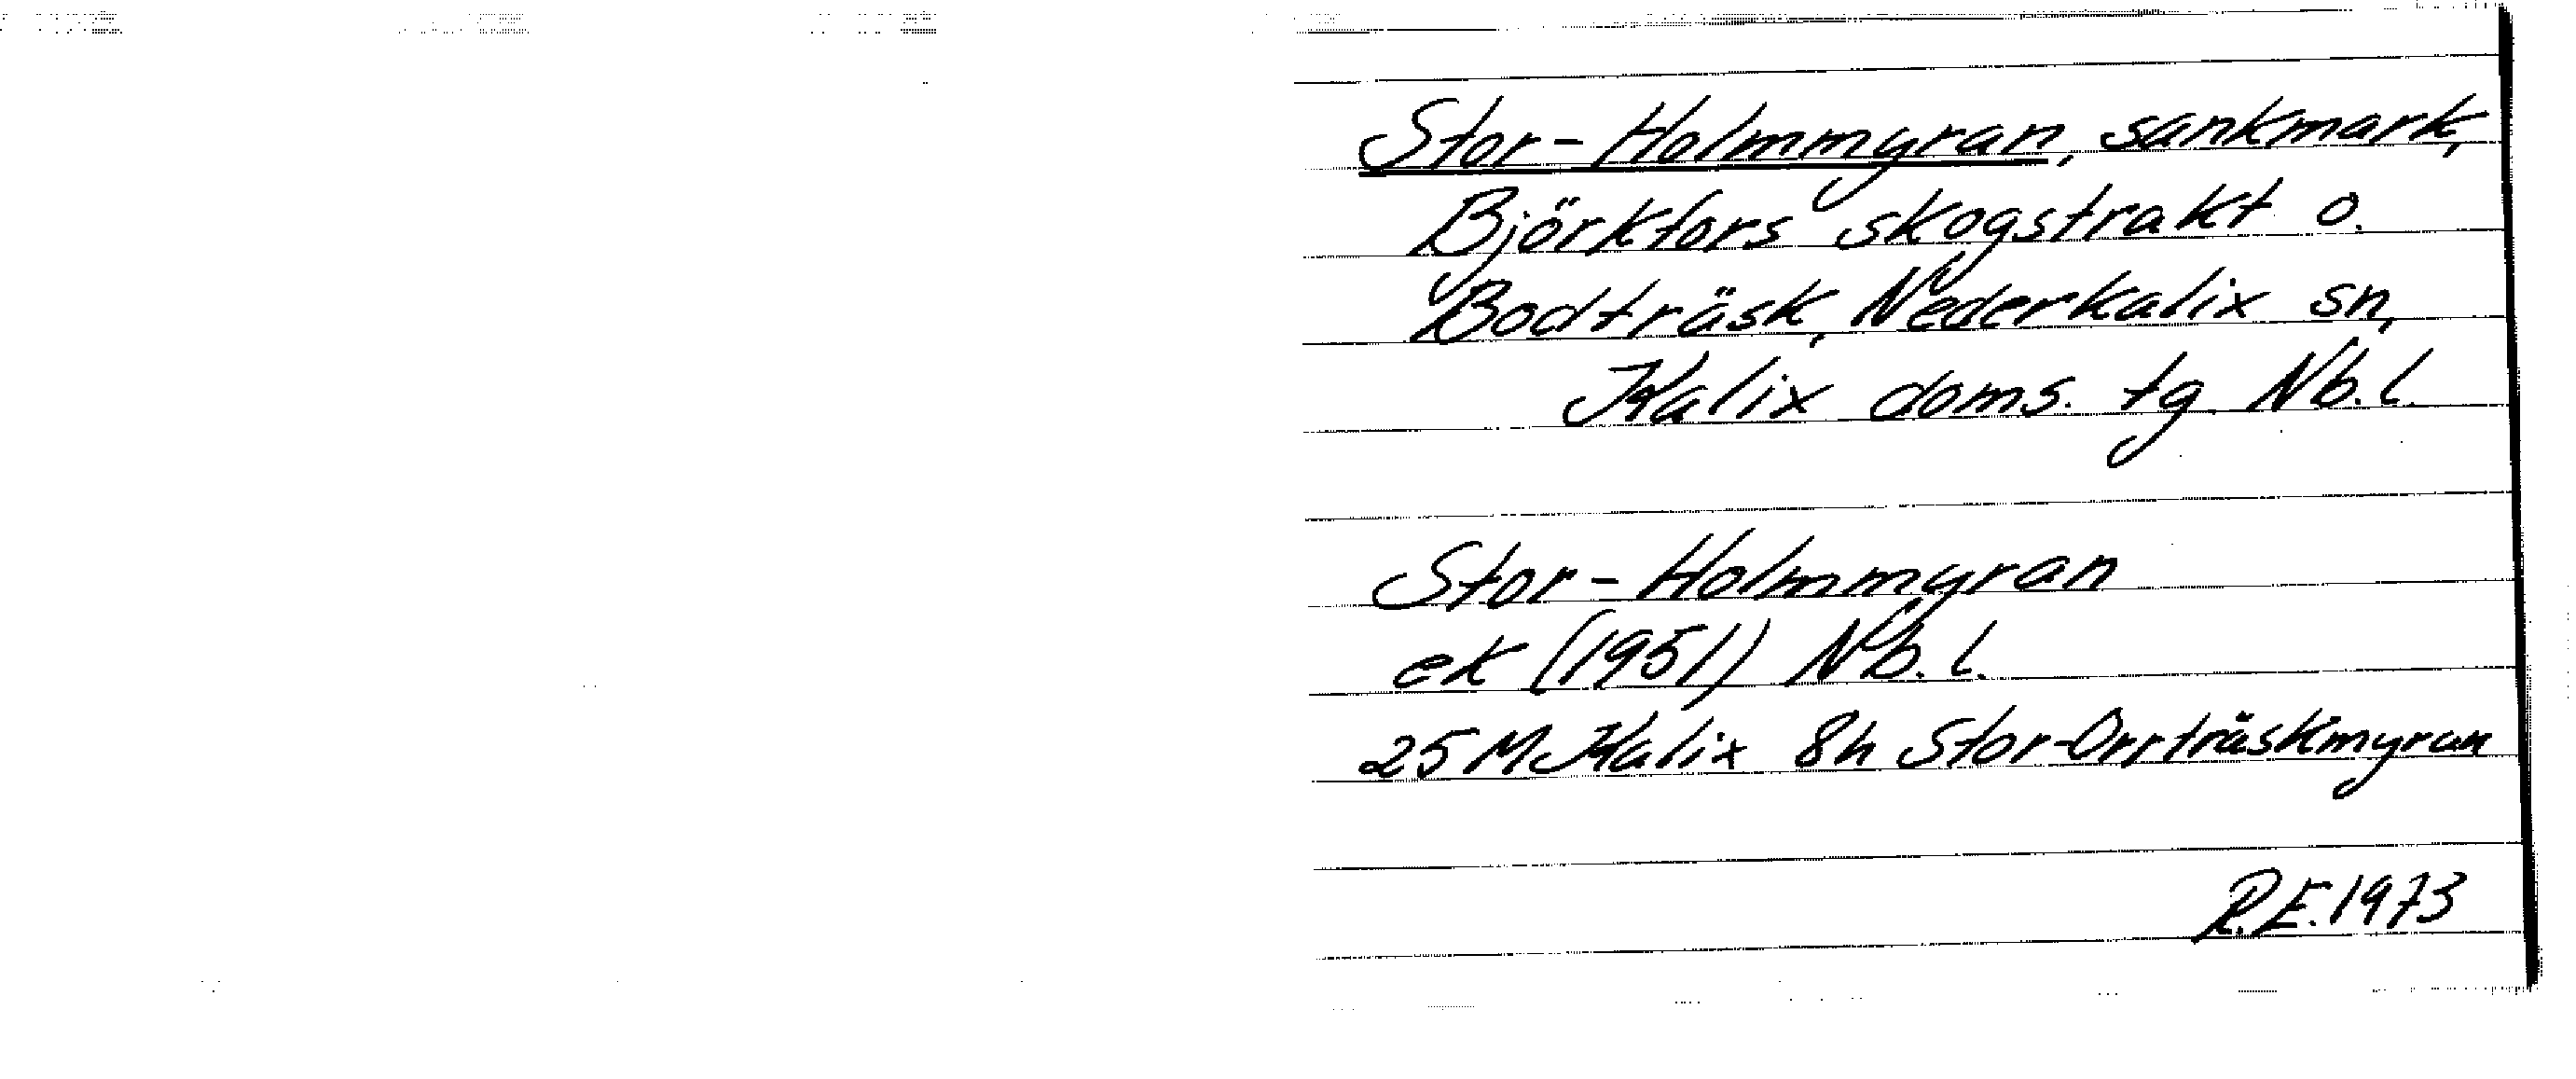 Stor-Holmmyran, sankmark,
Björkfors skogstrakt o.
Bodträsk, Nederkalix sn,
Kalix doms. tg Nb.l.
Stor-Holmmyran
ek (1951) Nb.l.
25 M Kalix 8h Stor-Orrträskmyran
R.E. 1973